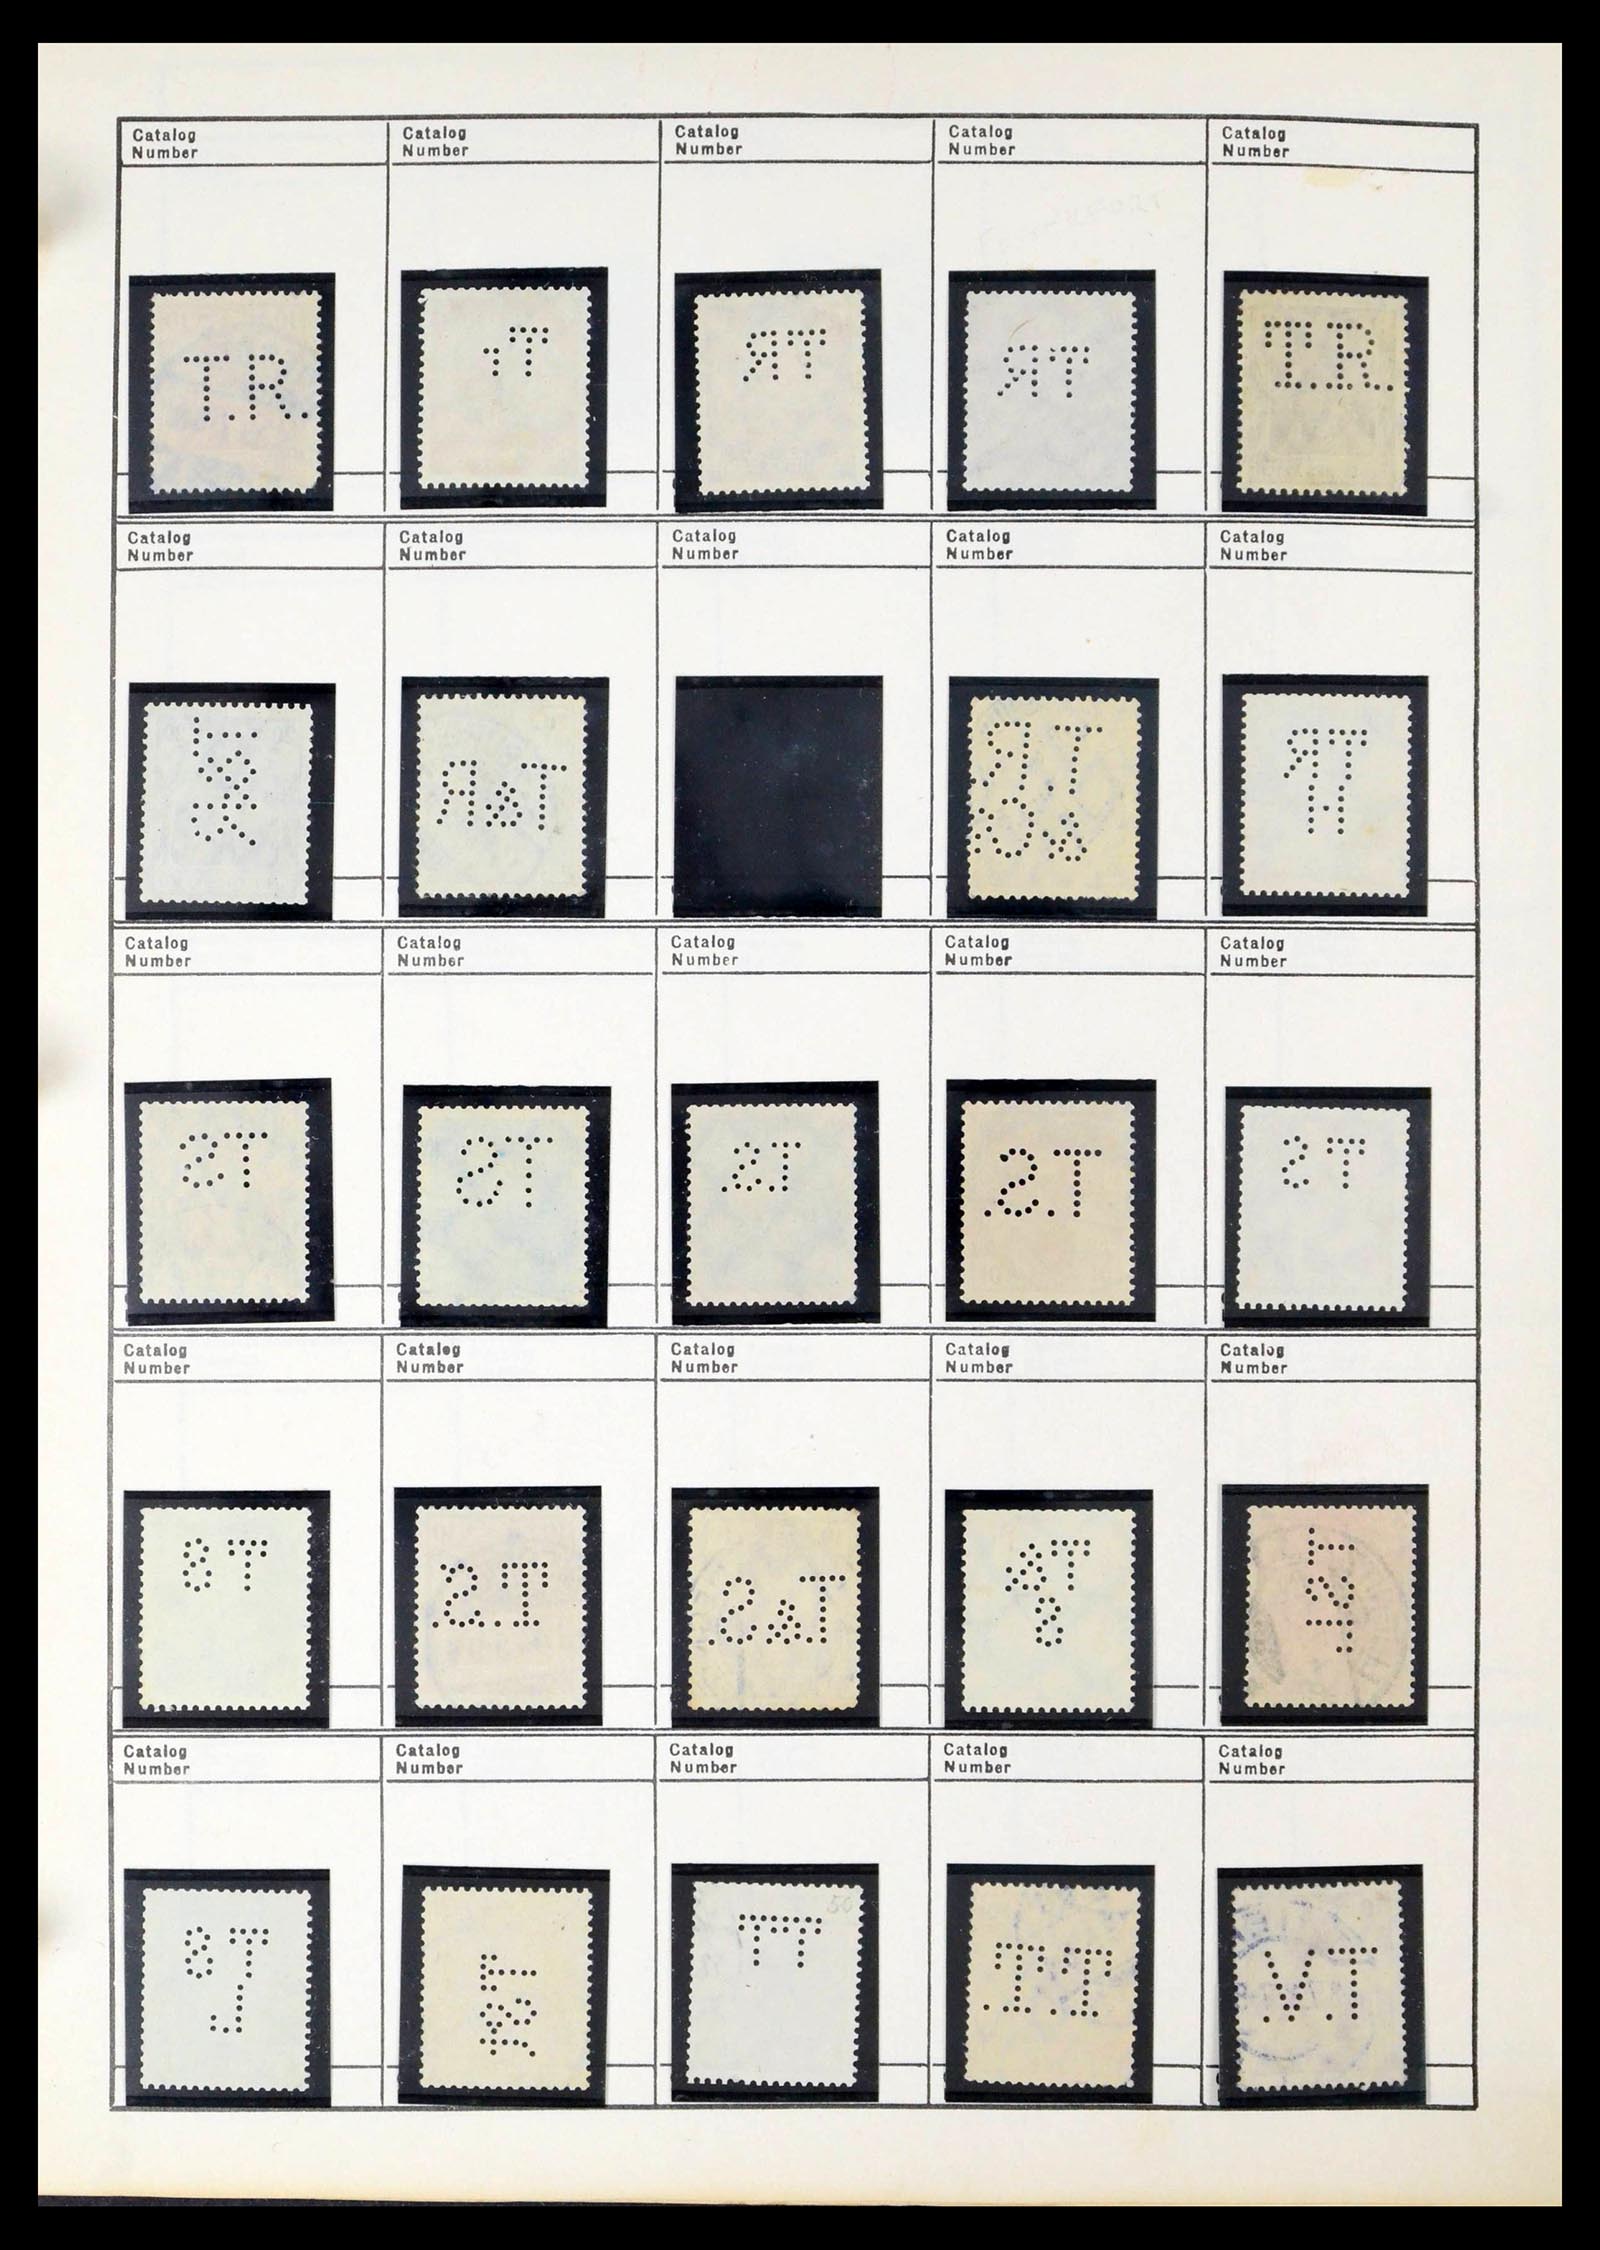 Catalog Catalog Catalog Catalog Catalog
Number Number Number Number Number
T.R. rT RT RT T.R.
Catalog Catalog Catalog Catalog Catalog
Number Number Number Number Number
R&T R.T
C& RT
H
Catalog Catalog Catalog Catalog Catalog
Number Number Number Number Number
ST ST .S.T .S.T ST
Catalog Catalog Catalog Catalog Catalog
Number Number Number Number Number
ST .S.T .S&T &T
S
Catalog Catalog Catalog Catalog Catalog
Number Number Number Number Number
ST
J TT 50 .T.T V.T